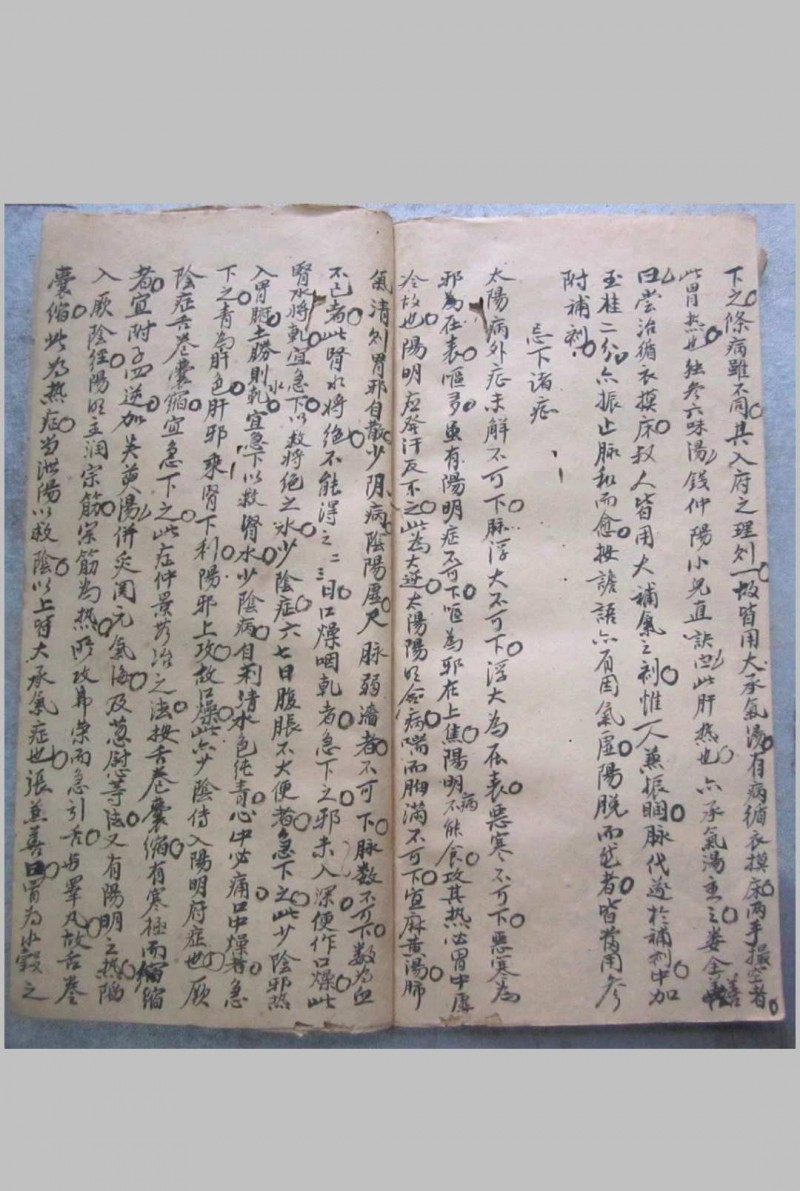 下之條病雖不同其入府之理則一故皆用大承氣湯有病循衣摸床两手撮空者
此胃热也独参六味湯錢仲陽小兒直訣云此肝热也六承氣湯主之婁全善
曰尝治循衣摸床数人皆用大補氣之剂惟一人兼振瞤脉代遂於補剂中加
玉桂二分亦振止脉和而愈按譫語亦有因氣虚陽脱而然者皆當用参
附補剂
忌下诸症
太陽病外症未解不可下脉浮大不可下浮大為在表惡寒不可下惡寒為
邪為在表嘔多虽有陽明症不可下嘔為邪在上焦陽明病不能食攻其热必胃中虚
冷故也陽明应發汗反下之此為大逆太陽陽明合病喘而胸滿不可下宜麻黄湯肺
氣清则胃邪自散少阴病陰陽虚尺脉弱濇者不可下脉数不可下数為血
不已者此腎水将绝不能得之二三日口燥咽乾者急下之邪未入深便作口燥此
腎水将乾宜急下以救将绝之水少陰症六七日腹脹不大便者急下之此少陰邪热
入胃腑土勝則水乾宜急下以救腎水少陰病自利清水色纯青心中必痛口中燥者急
下之青為肝色肝邪乘腎下利陽邪上攻故口燥此亦少陰传入陽明府症也厥
陰症舌卷囊縮宜急下之此症仲景無治之法按舌卷囊縮有寒极而縮
者宜附子四逆加吴萸湯併灸関元氣海及葱慰等法又有陽明之热陷
入厥陰经陽明主润宗筋宗筋為热所攻弗荣而急引舌与睪丸故舌卷
囊縮此為热症当泄陽以救陰以上皆大承氣症也張兼善曰胃為水穀之